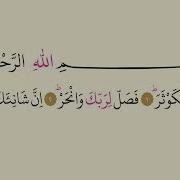 ـمِ اللهِ الرَّحْ
كَوْثَرَ ۝١ فَصَلِّ لِرَبِّكَ وَانْحَرْ ۝٢ إِنَّ شَانِئَكَ